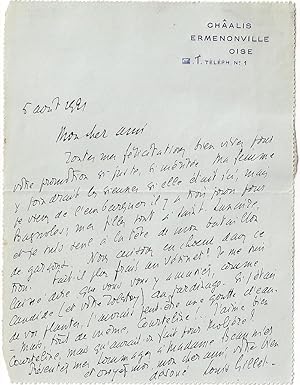 CHÂALIS
ERMENONVILLE
OISE
TÉLÉPH. N° 1
5 août 1921
Mon cher ami
Toutes mes félicitations bien vives pour
votre promotion si juste, si méritée. Ma femme
y joindrait les siennes si elle était ici, mais
je viens de l'embarquer il y a trois jours pour
Bagnoles; mes filles sont à Saint-
et je suis resté à la tête de mon bataillon
de garçons. Nous cuisons en
Fait-il plus frais au Je me suis
laissé dire que vous vous y amusiez, comme
Candide (et votre Tolstoy) au jardinage. Si j'étais
de vos plantes, j'aurais peut-être une goutte d'eau.
Mais, tout de même, Courteline! J'aime bien
Courteline, mais qu'aurait-on fait pour Molière?
Présentez mes hommages à madame
et croyez-moi, mon cher ami, votre bien
dévoué Louis Gillet.